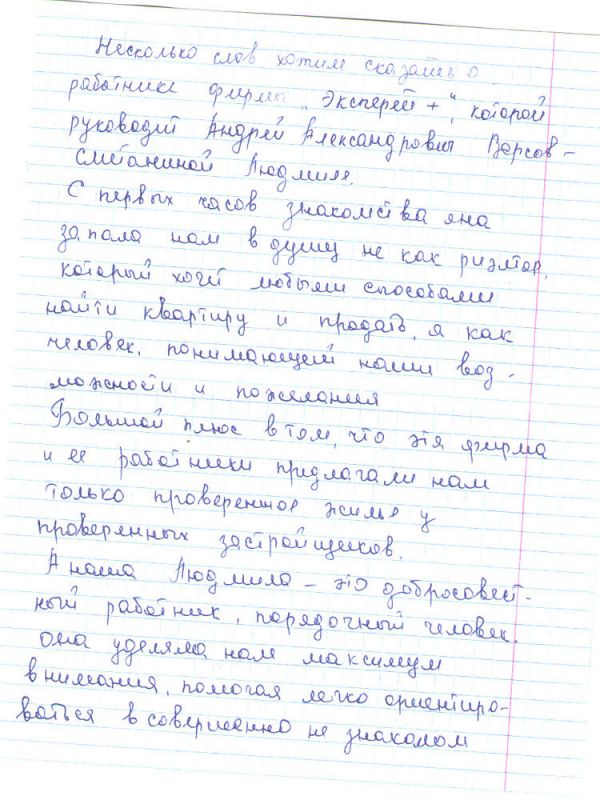 Несколько слов хотим сказать о
работнике фирмы „Эксперт +", которой
руководит Андрей Александрович Версов –
Сметаниной Людмиле.
С первых часов знакомства она
запала нам в душу не как риэлтор,
который хочет любыми способами
найти квартиру и продать, а как
человек, понимающей наши воз-
можности и пожелания
Большой плюс в том, что эта фирма
и ее работники предлагали нам
только проверенное жилье у
проверенных застройщиков.
А наша Людмила – это добросовест-
ный работник, порядочный человек.
она уделяла нам максимум
внимания, помогая легко ориентиро-
ваться в совершенно не знаком